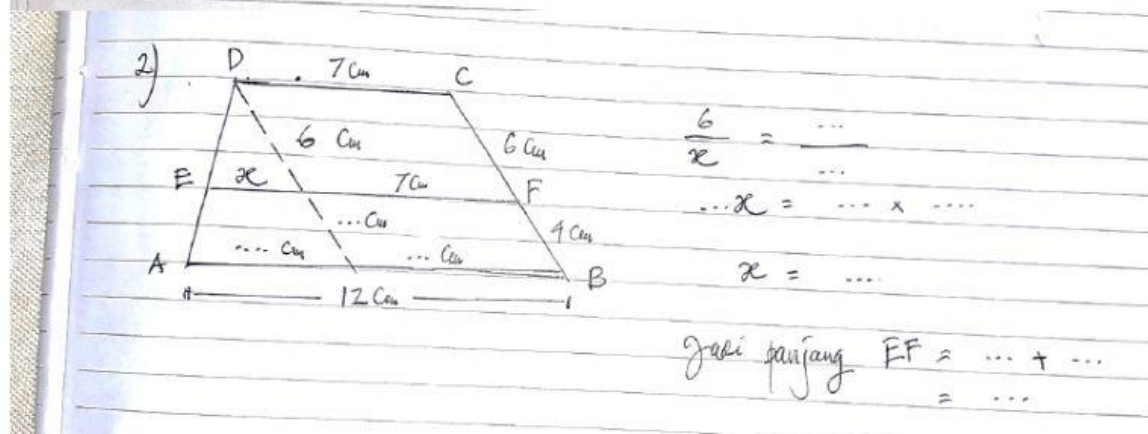 2)
D 7 Cm C
6 Cm 6 Cm
E x 7 Cm F
... Cm 4 Cm
.... Cm ... Cm
A B
12 Cm
6/x = .../...
...x = ... x ....
x = ....
Jadi panjang EF = ... + ...
= ...